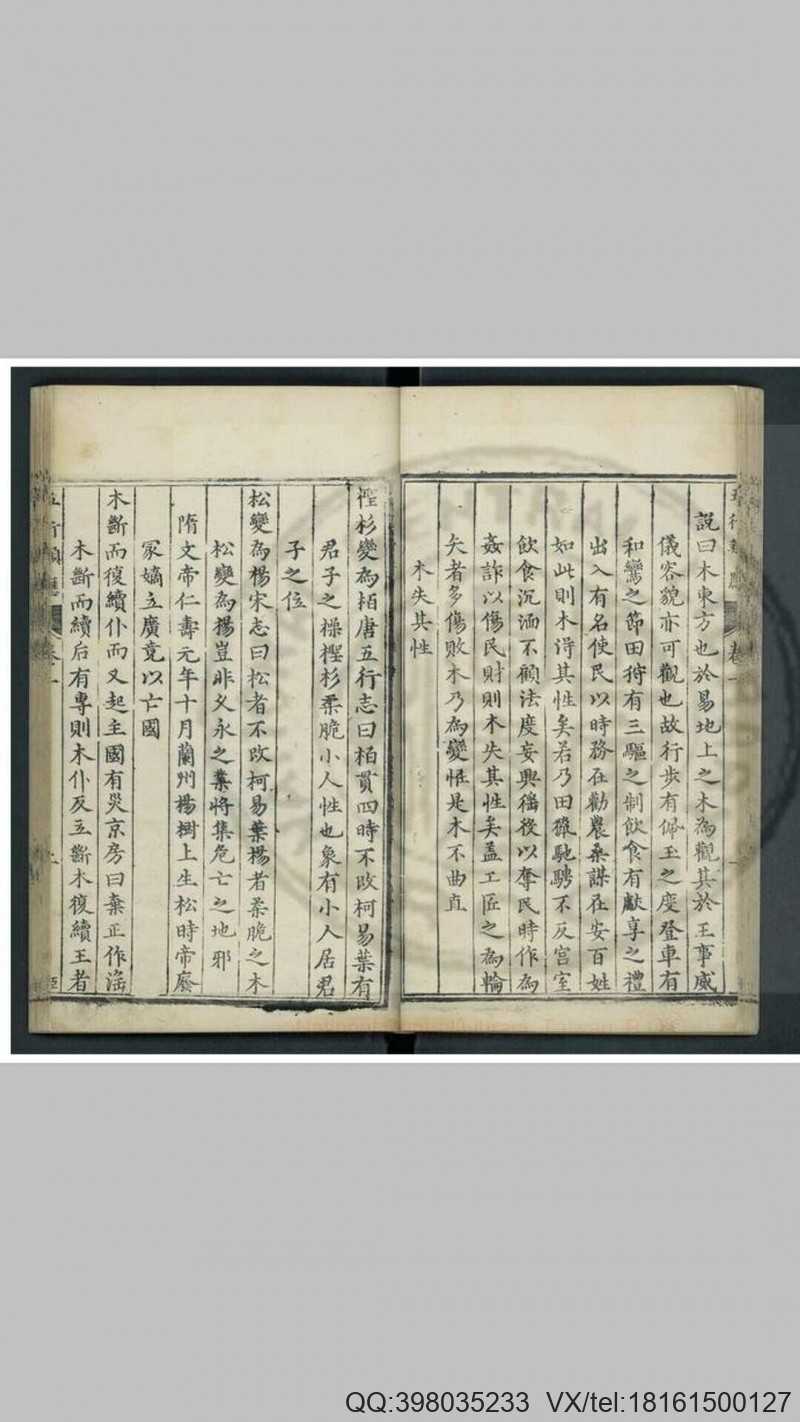 說曰木東方也於易地上之木為觀其於王事威
儀容貌亦可觀也故行步有佩玉之度登車有
和鸞之節田狩有三驅之制飲食有獻享之禮
出入有名使民以時務在勸農桑謀在安百姓
如此則木得其性矣若乃田獵馳騁不反宮室
飲食沉湎不顧法度妄興徭役以奪民時作為
姦詐以傷民財則木失其性矣盖工匠之為輪
矢者多傷敗木乃為變恠是木不曲直
木失其性
檉杉變為栢唐五行志曰栢貫四時不改柯易葉有
君子之操檉杉柔脆小人性也象有小人居君
子之位
松變為楊宋志曰松者不改柯易葉楊者柔脆之木
松變為楊豈非乆永之業將集危亡之地邪
隋文帝仁壽元年十月蘭州楊樹上生松時帝廢
冢嫡立廣竟以亡國
木斷而復續仆而又起主國有災京房曰棄正作滛
木斷而續后有專則木仆反立斷木復續王者
QQ:398035233 VX/tel:18161500127